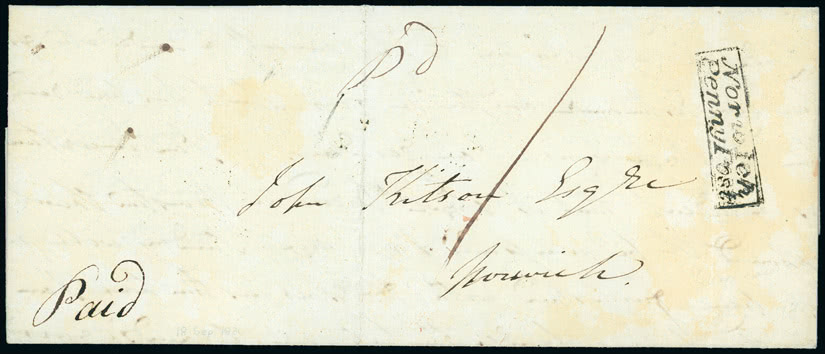 Pd
Norwich
Penny Post
John Kitson Esqre
Norwich.
Paid